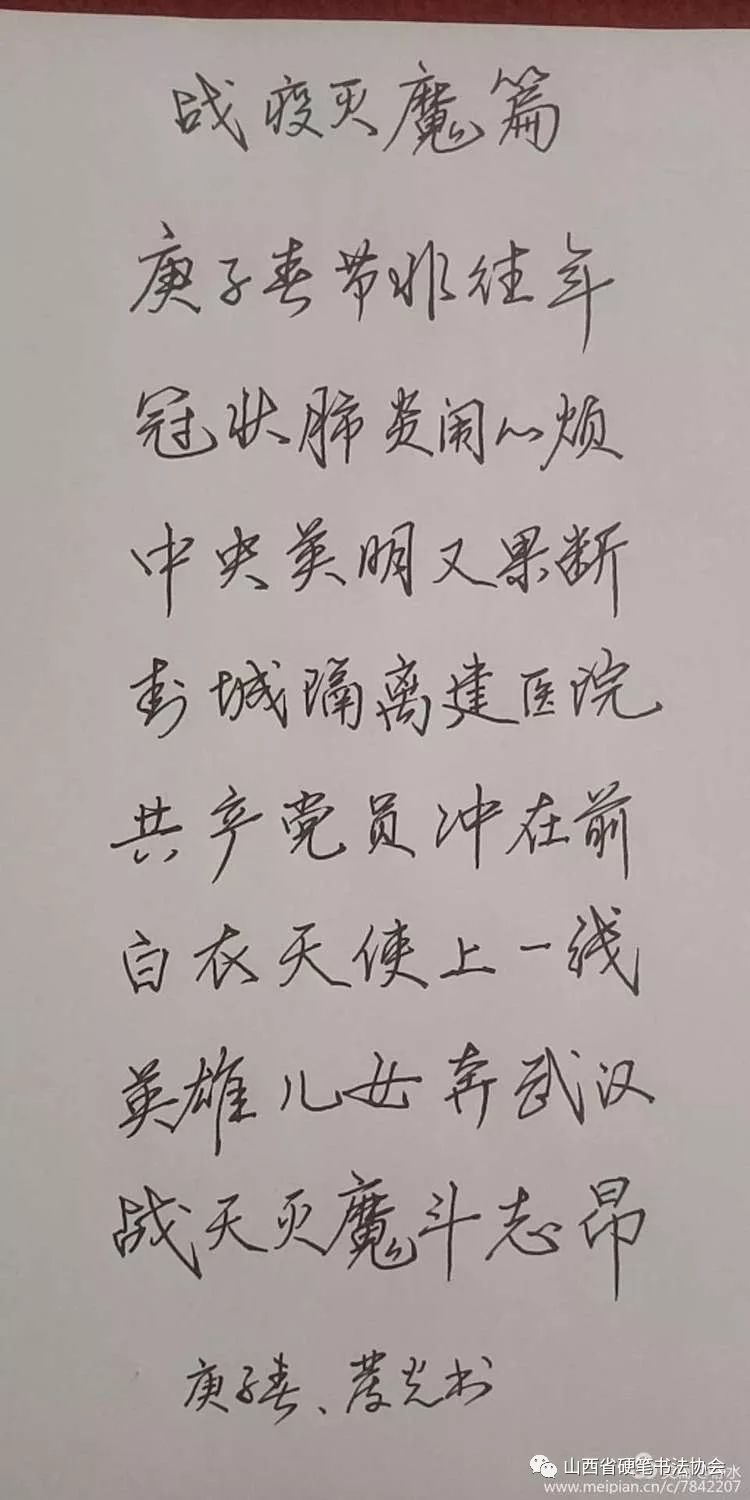 战疫灭魔篇
庚子春节非往年
冠状肺炎闹心烦
中央英明又果断
封城隔离建医院
共产党员冲在前
白衣天使上一线
英雄儿女奔武汉
战天灭魔斗志昂
庚子春、光书
山西省硬笔书法协会
www.meipian.cn/c/7842207